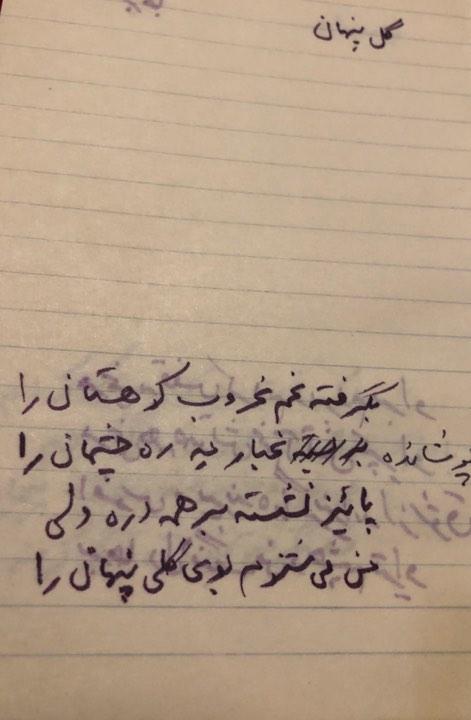 گل پنهان
بگرفته غم غروب کوهستان را
پوشانده غبار ره چشمان را
پائیز نشسته بر همه دره ولی
من می شنوم بوی گلی پنهان را